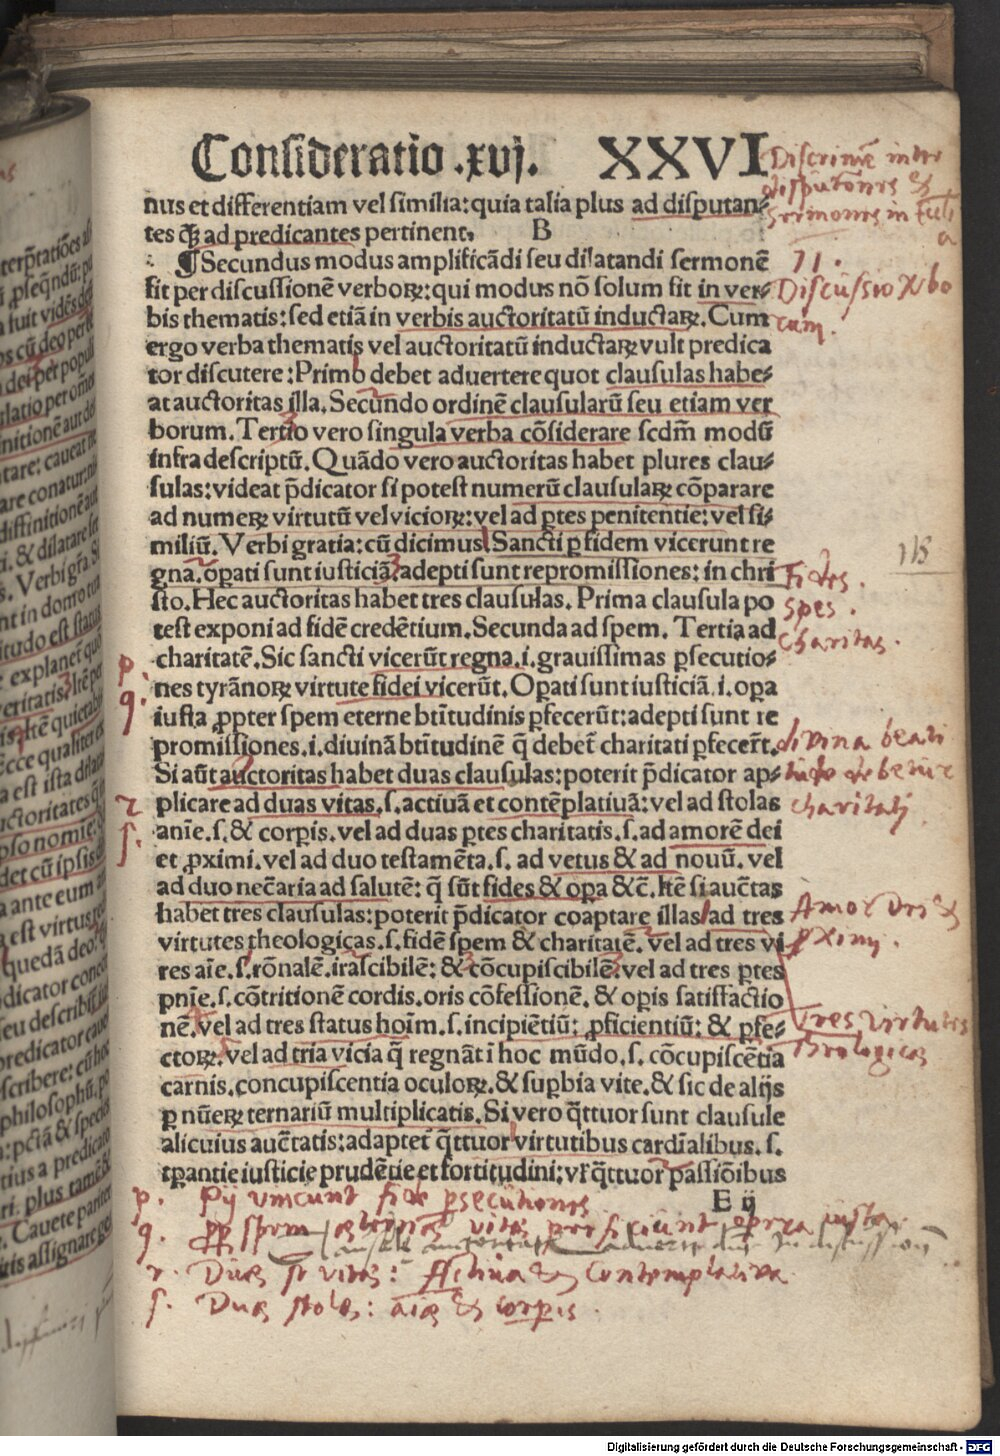 Consideratio .xvj. XXVI
nus et differentiam vel similia: quia talia plus ad disputan⸗
tes qȝ ad predicantes pertinent. B
¶ Secundus modus amplificādi seu dilatandi sermonē
fit per discussionē verboꝝ: qui modus nō solum fit in ver⸗
bis thematis: sed etiā in verbis auctoritatū inductaꝝ. Cum
ergo verba thematis vel auctoritatū inductaꝝ vult predica
tor discutere: Primo debet aduertere quot clausulas habe⸗
at auctoritas illa. Secundo ordinē clausularū seu etiam ver
borum. Tertio vero singula verba cōsiderare scdm̄ modū
infra descriptū. Quādo vero auctoritas habet plures clau⸗
sulas: videat p̄dicator si potest numerū clausulaꝝ cōparare
ad numeꝝ virtutū vel vicioꝝ: vel ad ꝑtes penitentie: vel si⸗
miliū. Verbi gratia: cū dicimus Sancti ꝑ fidem vicerunt re
gna. oꝑati sunt iusticiā: adepti sunt repromissiones: in chri
sto. Hec auctoritas habet tres clausulas. Prima clausula po
test exponi ad fidē credētium. Secunda ad spem. Tertia ad
charitatē. Sic sancti vicerūt regna .i. grauissimas ꝑsecutio⸗
nes tyrānoꝝ virtute fidei vicerūt. Oꝑati sunt iusticiā .i. oꝑa
iusta ꝓpter spem eterne bt̄itudinis ꝑfecerūt: adepti sunt re
promissiones .i. diuinā bt̄itudinē q̄ debet̄ charitati ꝑfecer̄t.
Si aūt auctoritas habet duas clausulas: poterit p̄dicator ap⸗
plicare ad duas vitas .s. actiuā et contēplatiuā: vel ad stolas
anīe .s. & corꝑis. vel ad duas ꝑtes charitatis .s. ad amorē dei
et ꝓximi. vel ad duo testamēta .s. ad vetus & ad nouū. vel
ad duo nec̄aria ad salutē: q̄ sūt fides & oꝑa &c̄. Itē si auc̄tas
habet tres clausulas: poterit p̄dicator coaptare illas ad tres
virtutes theologicas .s. fidē spem & charitatē. vel ad tres vi
res aīe .s. rōnalē. irascibilē: & cōcupiscibilē: vel ad tres ꝑtes
pn̄ie .s. cōtritionē cordis. oris cōfessionē. & oꝑis satisfactio
nē. vel ad tres status hoīm .s. incipiētiū: ꝓficientiū: & ꝑfe⸗
ctoꝝ. vel ad tria vicia q̄ regnāt i hoc mūdo .s. cōcupiscētia
carnis. concupiscentia oculoꝝ. & suꝑbia vite. & sic de alijs
ꝑ nūeꝝ ternariū multiplicatis. Si vero q̄ttuor sunt clausule
alicuius auc̄tatis: adaptet̄ q̄ttuor virtutibus cardīalibus .s.
tꝑantie iusticie prudētie et fortitudini: vl̓ q̄ttuor passiōibus
E ij
Discrimē inter
disputōnis &
sermonis in
11.
Discussio
Fides.
spes.
charitas.
115
p
q.
divina beati
tudo debetur
charitati
r
s.
Amor Dei &
ꝓximi.
Tres virtutes
Theologicas
p. Pij vincunt fide ꝑsecutiones
q. spem æternæ vitæ proficiunt opera iusta.
r. Duæ st vitæ: Actiua & Contemplatiua
s. Duæ stolæ: aiæ & corꝑis.